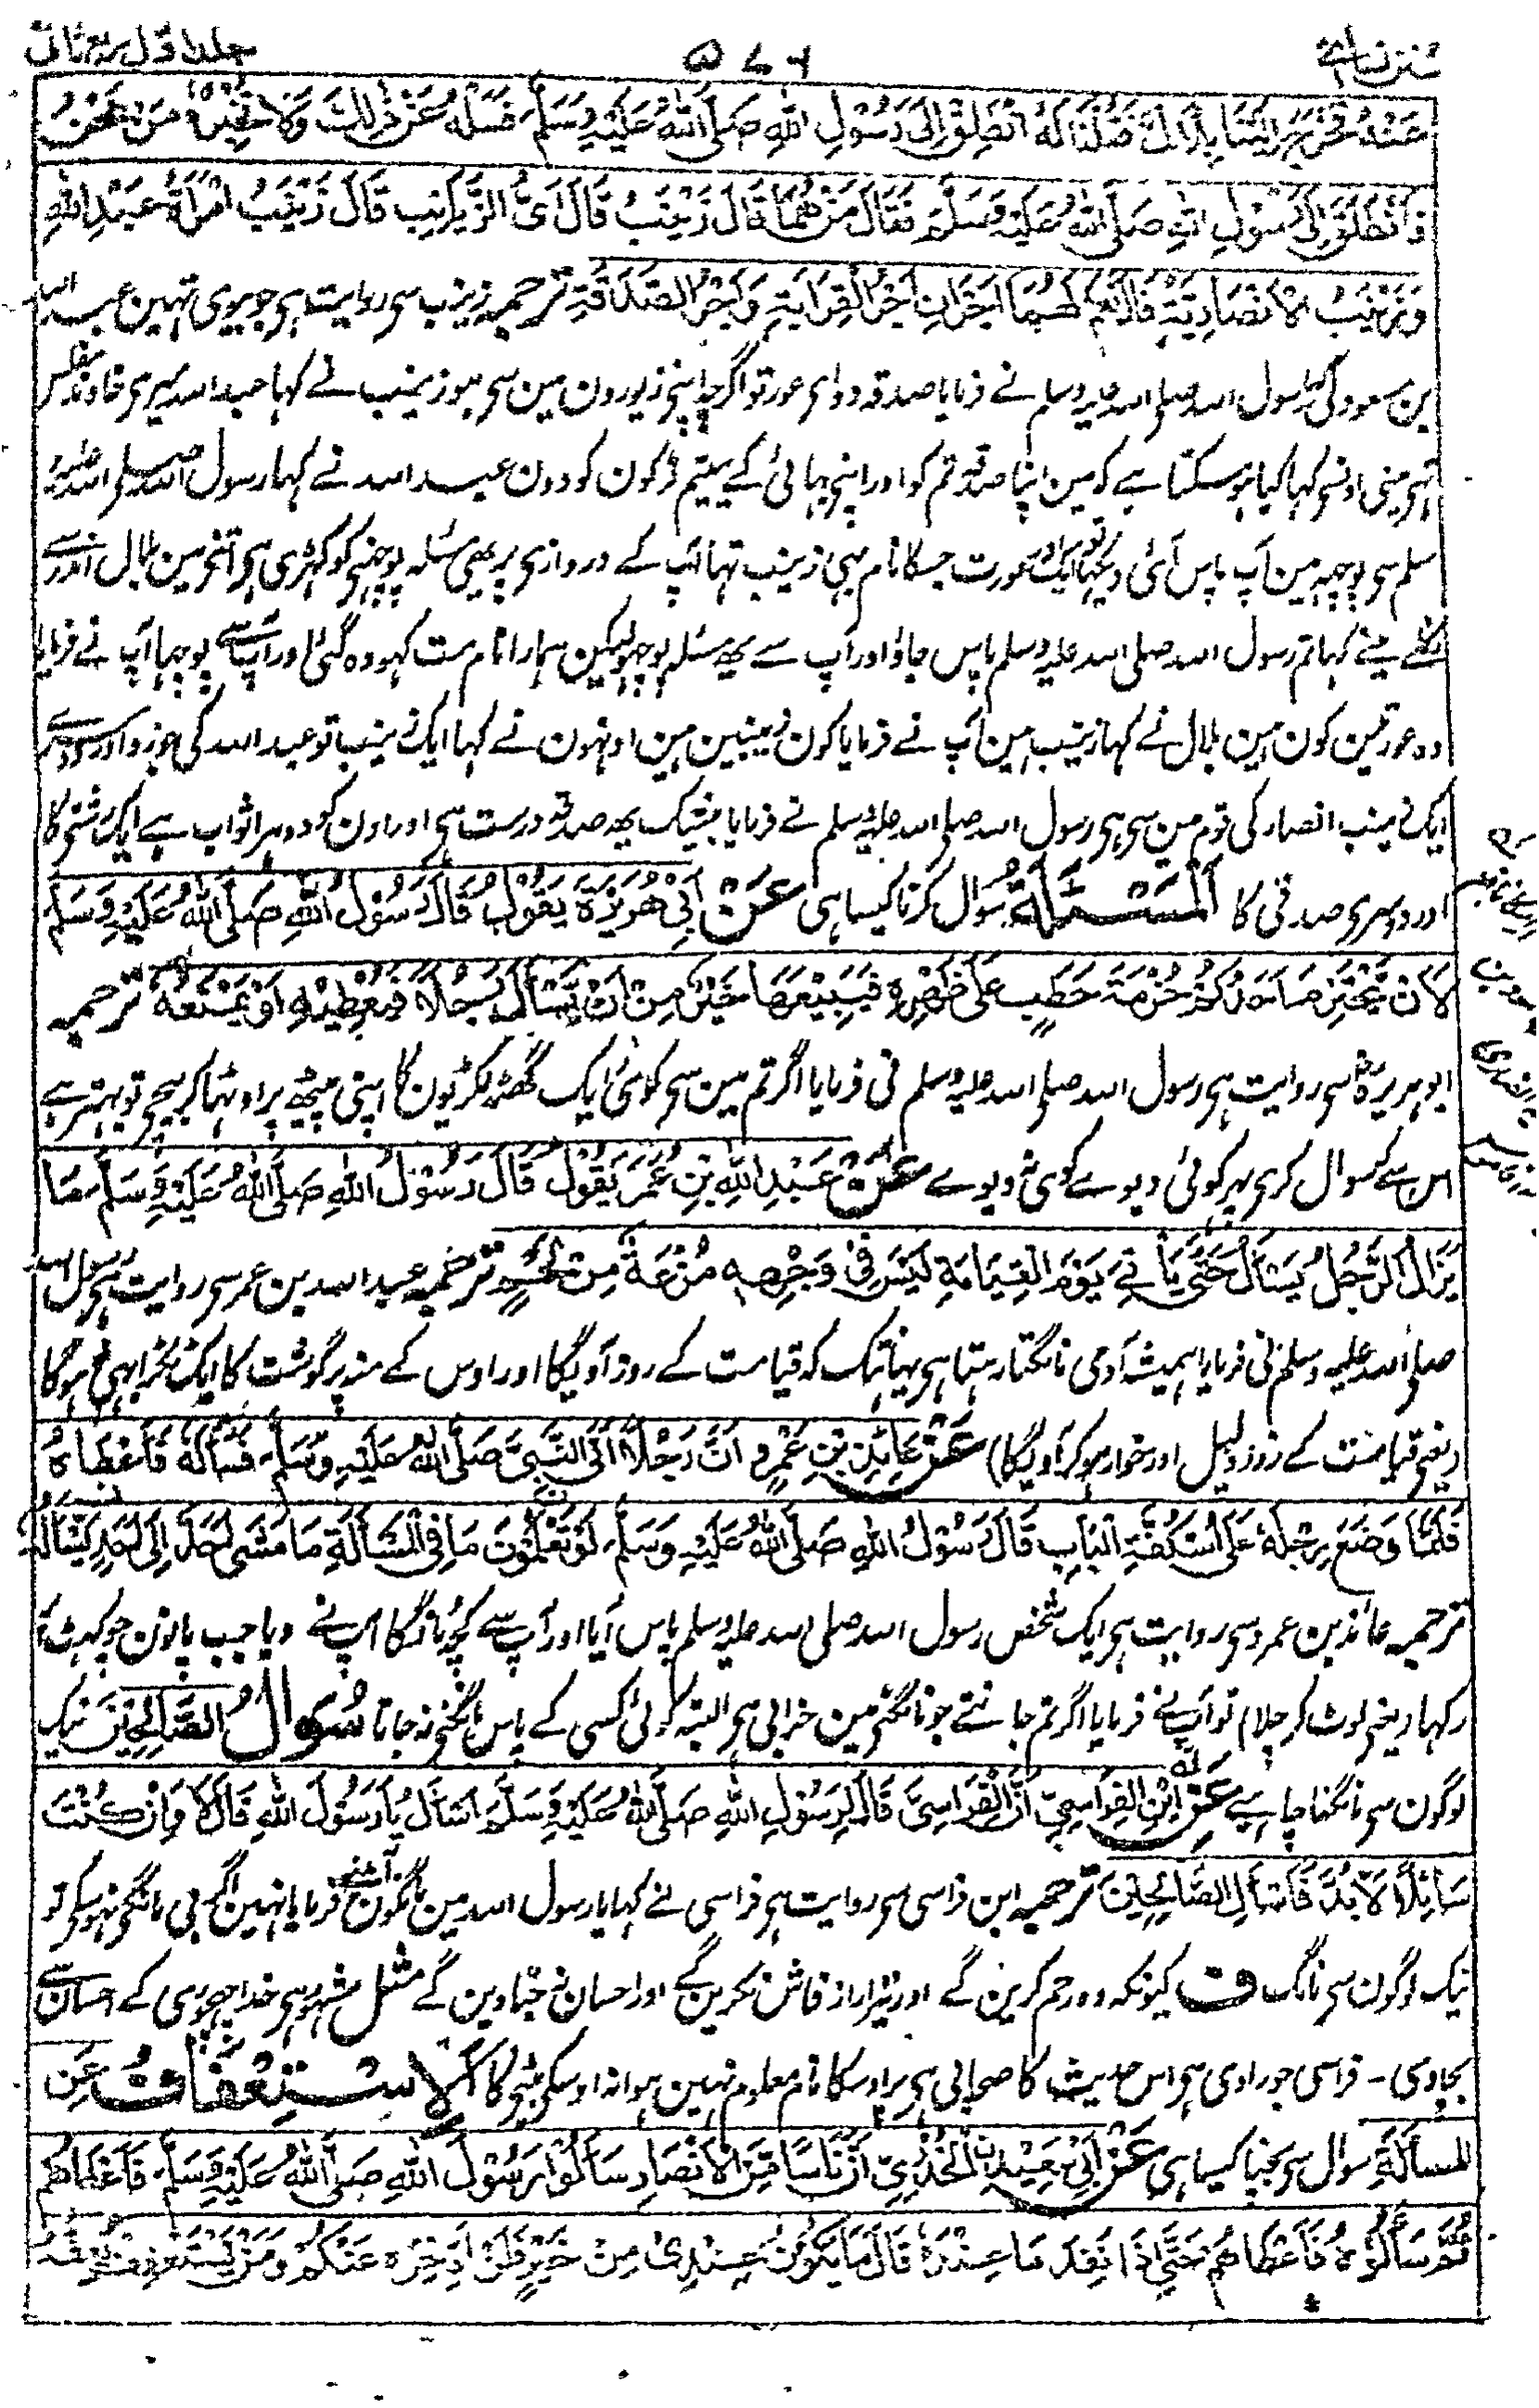 سنن نسائی
۵۷۶
جلد اول ربع ثانی
عَنْهُ فَخَرَجَ اِلَيْنَا بِلَالٌ فَقُلْنَا لَهُ انْطَلِقْ اِلٰى رَسُوْلِ اللهِ صَلَّى اللهُ عَلَيْهِ وَسَلَّمَ فَسَلْهُ عَنْ ذٰلِكَ وَلَا تُخْبِرْهُ مَنْ نَحْنُ
فَانْطَلَقَ اِلٰى رَسُوْلِ اللهِ صَلَّى اللهُ عَلَيْهِ وَسَلَّمَ فَقَالَ مَنْ هُمَا قَالَ زَيْنَبُ قَالَ اَىُّ الزَّيَانِبِ قَالَ زَيْنَبُ امْرَاَةُ عَبْدِ اللهِ
وَزَيْنَبُ الْاَنْصَارِيَّةُ قَالَ نَعَمْ لَهُمَا اَجْرَانِ اَجْرُ الْقَرَابَةِ وَاَجْرُ الصَّدَقَةِ ترجمہ زینب سی روایت ہی جو بیوی تہین عبد اللہ
بن مسعود کی کہ رسول اللہ صلی اللہ علیہ وسلم نے فرمایا صدقہ دو ای عورتو اگرچہ اپنی زیورون مین سی ہو زینب نے کہا عبد اللہ میری خاوند مفلس
تہی مینی اونسی کہا کیا ہو سکتا ہے کہ مین اپنا صدقہ تم کو اور اپنی بہائی کے یتیم لڑکون کو دون عبد اللہ نے کہا رسول اللہ صلی اللہ علیہ
سلم سی پوچہہ مین آپ پاس آئی دیکہا تو ایک اور عورت جسکا نام بہی زینب تہا آپ کے دروازی پر یہی مسئلہ پوچہنی کو کہڑی ہی اتنی مین بلال اندر سے
نکلے مینے کہا تم رسول اللہ صلی اللہ علیہ وسلم پاس جاؤ اور آپ سے یہہ مسئلہ پوچہو لیکن ہمارا نام مت کہو وہ گئی اور آپ سے پوچہا آپ نے فرمایا
وہ عورتین کون ہین بلال نے کہا زینب ہین آپ نے فرمایا کون زینبین ہین اونہون نے کہا ایک زینب تو عبد اللہ کی جورو اور دوسری
ایک زینب انصار کی قوم مین سی ہی رسول اللہ صلی اللہ علیہ وسلم نے فرمایا بیشک یہہ صدقہ درست ہی اور اون کو دوہرا ثواب ہے ایک رشتی کا
اور دوسری صدقی کا اَلْمَسْئَلَةُ سوال کرنا کیسا ہی عَنْ اَبِىْ هُرَيْرَةَ يَقُوْلُ قَالَ رَسُوْلُ اللهِ صَلَّى اللهُ عَلَيْهِ وَسَلَّمَ
لَاَنْ يَّحْتَزِمَ اَحَدُكُمْ حُزْمَةَ حَطَبٍ عَلٰى ظَهْرِهٖ فَيَبِيْعَهَا خَيْرٌ مِنْ اَنْ يَّسْاَلَ رَجُلًا فَيُعْطِيْهِ اَوْ يَمْنَعُهُ ترجمہ
ابو ہریرہ سی روایت ہی رسول اللہ صلی اللہ علیہ وسلم نی فرمایا اگر تم مین سی کوئی ایک گٹھہ لکڑیون کا اپنی پیٹھہ پر اوٹہا کر بیچی تو بہتر ہے
اس سے کہ سوال کری پہر کوئی دیوے کوئی نہ دیوے عَنْ عَبْدِ اللهِ بْنِ عُمَرَ يَقُوْلُ قَالَ رَسُوْلُ اللهِ صَلَّى اللهُ عَلَيْهِ وَسَلَّمَ مَا
يَزَالُ الرَّجُلُ يَسْاَلُ حَتّٰى يَاْتِىَ يَوْمَ الْقِيَامَةِ لَيْسَ فِىْ وَجْهِهٖ مُزْعَةٌ مِنْ لَحْمٍ ترجمہ عبد اللہ بن عمر سی روایت ہی رسول اللہ
صلی اللہ علیہ وسلم نی فرمایا ہمیشہ آدمی مانگتا رہتا ہی یہانتک کہ قیامت کے روز آویگا اور اوس کے منہ پر گوشت کا ایک ٹکڑا بہی نہ ہوگا
(یعنی قیامت کے روز ذلیل اور خوار ہو کر آویگا) عَنْ عَائِذِ بْنِ عَمْرٍو اَنَّ رَجُلًا اَتَى النَّبِىَّ صَلَّى اللهُ عَلَيْهِ وَسَلَّمَ فَسَاَلَهُ فَاَعْطَاهُ
فَلَمَّا وَضَعَ رِجْلَهُ عَلٰى اُسْكُفَّةِ الْبَابِ قَالَ رَسُوْلُ اللهِ صَلَّى اللهُ عَلَيْهِ وَسَلَّمَ لَوْ تَعْلَمُوْنَ مَا فِى الْمَسْاَلَةِ مَا مَشٰى اَحَدٌ اِلٰى اَحَدٍ يَسْاَلُهُ
ترجمہ عائذ بن عمرو سی روایت ہی ایک شخص رسول اللہ صلی اللہ علیہ وسلم پاس آیا اور آپ سے کچہہ مانگا آپ نے دیا جب پانون چوکہٹ پر
رکہا (یعنی لوٹ کر چلا) تو آپ نے فرمایا اگر تم جانتے جو مانگنی مین خرابی ہی البتہ کوئی کسی کے پاس مانگنی نہ جاتا سُوَالُ الصَّالِحِيْنَ نیک
لوگون سی مانگنا چاہیے عَنِ ابْنِ الْفِرَاسِىِّ اَنَّ الْفِرَاسِىَّ قَالَ لِرَسُوْلِ اللهِ صَلَّى اللهُ عَلَيْهِ وَسَلَّمَ اَسْاَلُ يَا رَسُوْلَ اللهِ قَالَ لَا وَاِنْ كُنْتَ
سَائِلًا لَا بُدَّ فَاسْاَلِ الصَّالِحِيْنَ ترجمہ ابن فراسی سی روایت ہی فراسی نے کہا یا رسول اللہ مین مانگون آپ نے فرمایا نہین اگر بی مانگی نہو سکی تو
نیک لوگون سی مانگ ف کیونکہ وہ رحم کرین گے اور تیرا راز فاش نکرین گے اور احسان نہ جتاوین گے مثل مشہور ہی خدا چچوری کے احسان سے
بچاوی - فراسی جو راوی ہی اس حدیث کا صحابی ہی پر اوسکا نام معلوم نہین ہوا نہ اوسکی بیٹی کا اَلْاِسْتِعْفَافُ عَنِ
الْمَسْاَلَةِ سوال سی بچنا کیسا ہی عَنْ اَبِىْ سَعِيْدٍ الْخُدْرِىِّ اَنَّ نَاسًا مِّنَ الْاَنْصَارِ سَاَلُوْا رَسُوْلَ اللهِ صَلَّى اللهُ عَلَيْهِ وَسَلَّمَ فَاَعْطَاهُمْ
ثُمَّ سَاَلُوْهُ فَاَعْطَاهُمْ حَتّٰى اِذَا نَفِدَ مَا عِنْدَهُ قَالَ مَا يَكُوْنُ عِنْدِىْ مِنْ خَيْرٍ فَلَنْ اَدَّخِرَهُ عَنْكُمْ وَمَنْ يَّسْتَعْفِفْ يُعِفَّهُ